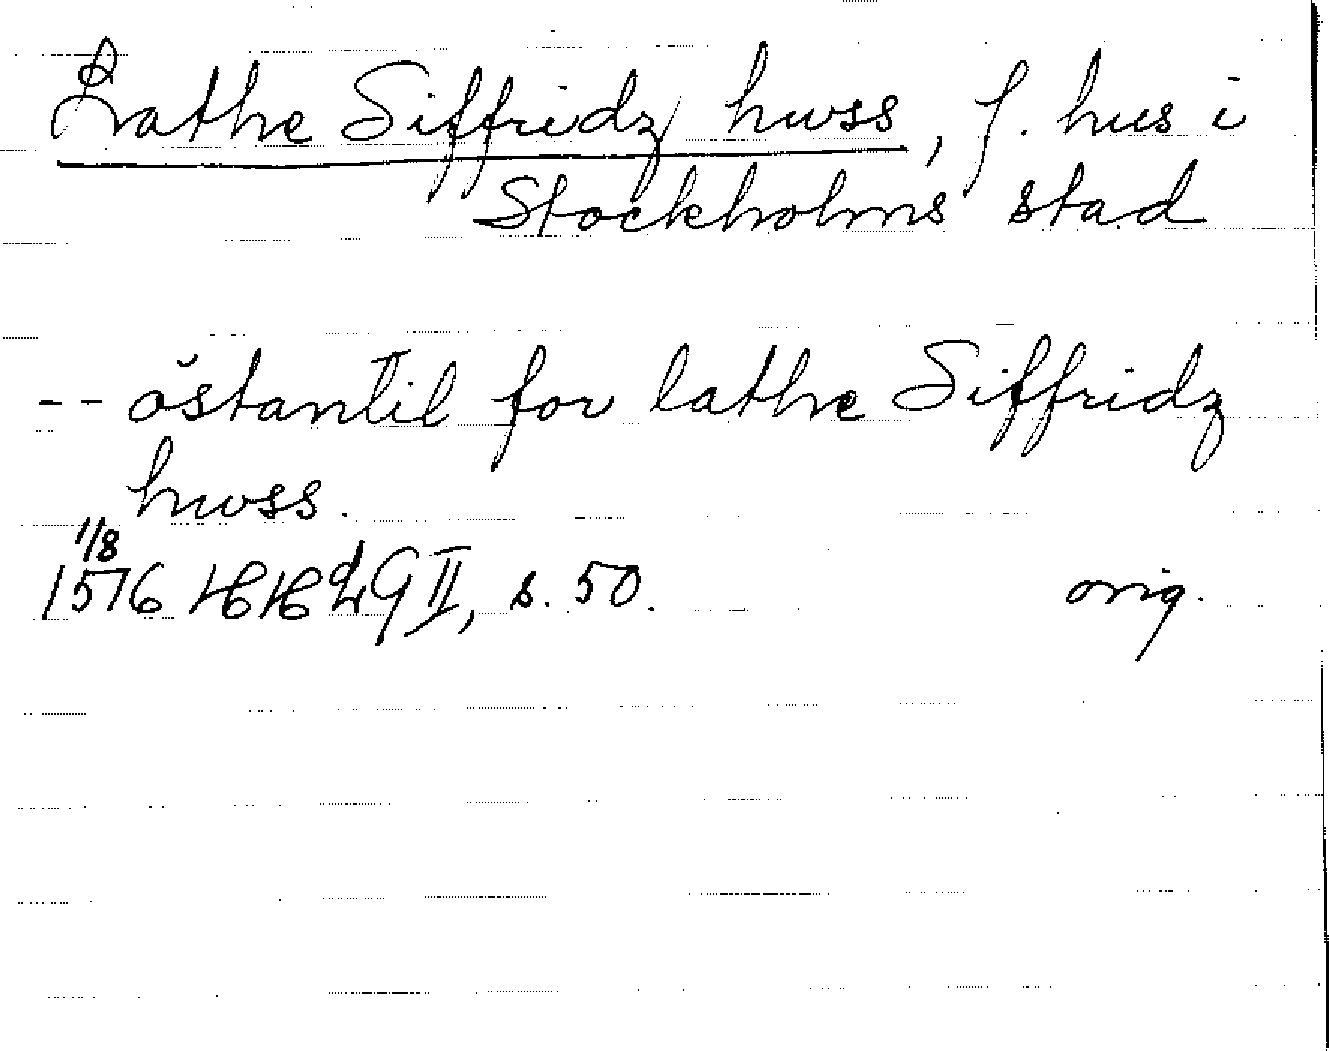 Lathe Siffridz hwss, f. hus i
Stockholms stad
-- östantil for lathe Siffridz
hwss.
1/8
1576 HH 2 G II, s. 50. orig.